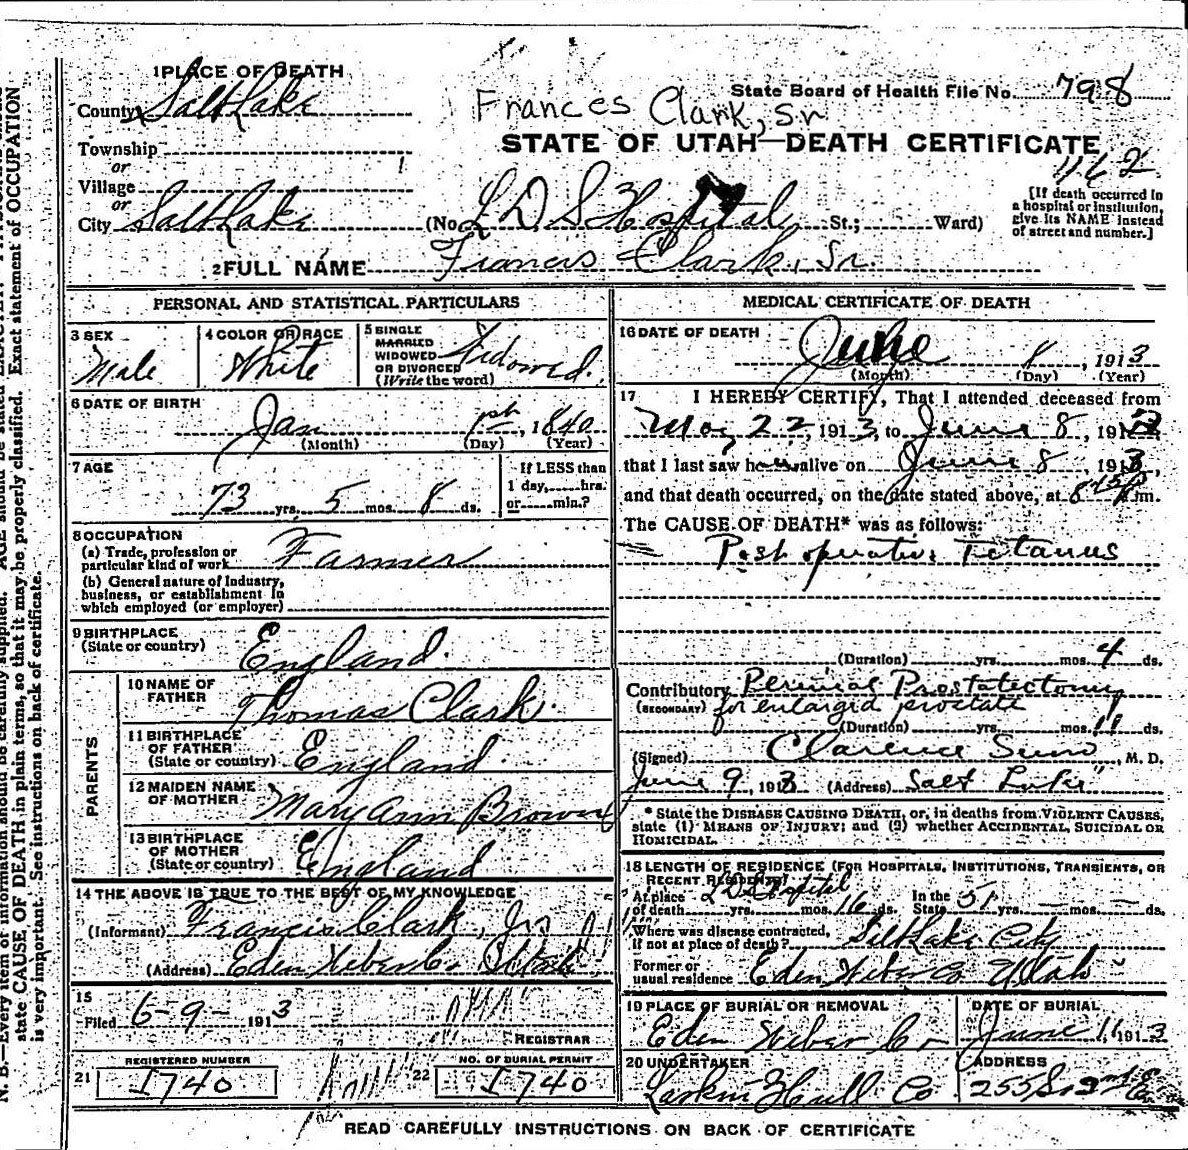 1 PLACE OF DEATH
County Salt Lake
State Board of Health File No. 798
Frances Clark, Sr
Township
STATE OF UTAH—DEATH CERTIFICATE
or
Village
462
or
City Salt Lake (No. L D S Hospital St.; Ward)
[If death occurred in
a hospital or institution,
give its NAME instead
of street and number.]
2 FULL NAME Francis Clark, Sr.
PERSONAL AND STATISTICAL PARTICULARS
3 SEX
Male
4 COLOR OR RACE
White
5 SINGLE
MARRIED
WIDOWED
OR DIVORCED
(Write the word)
Widowed.
6 DATE OF BIRTH
Jan 1st, 1840
(Month) (Day) (Year)
7 AGE
73 yrs. 5 mos. 8 ds.
If LESS than
1 day, hrs.
or min.?
8 OCCUPATION
(a) Trade, profession or
particular kind of work Farmer
(b) General nature of Industry,
business, or establishment in
which employed (or employer)
9 BIRTHPLACE
(State or country) England.
PARENTS
10 NAME OF
FATHER Thomas Clark.
11 BIRTHPLACE
OF FATHER
(State or country) England.
12 MAIDEN NAME
OF MOTHER Mary Ann Brown
13 BIRTHPLACE
OF MOTHER
(State or country) England
14 THE ABOVE IS TRUE TO THE BEST OF MY KNOWLEDGE
(Informant) Francis Clark, Jr.
(Address) Eden Weber Co Utah
15
Filed 6-9- 1913
REGISTRAR
REGISTERED NUMBER
21 I740
NO. OF BURIAL PERMIT
22 I740
MEDICAL CERTIFICATE OF DEATH
16 DATE OF DEATH
June 8, 1913
(Month) (Day) (Year)
17 I HEREBY CERTIFY, That I attended deceased from
May 22, 1913, to June 8, 191
that I last saw h alive on June 8, 1913,
and that death occurred, on the date stated above, at 8 m.
The CAUSE OF DEATH* was as follows:
Post operative Tetanus
(Duration) yrs. mos. 4 ds.
Contributory Perineal Prostatectomy
(SECONDARY) for enlarged prostate
(Duration) yrs. mos. 11 ds.
(Signed) Clarence Snow, M. D.
June 9, 1913 (Address) Salt Lake
* State the DISEASE CAUSING DEATH, or, in deaths from VIOLENT CAUSES,
state (1) MEANS OF INJURY; and (2) whether ACCIDENTAL, SUICIDAL OR
HOMICIDAL.
18 LENGTH OF RESIDENCE (FOR HOSPITALS, INSTITUTIONS, TRANSIENTS, OR
RECENT RESIDENTS)
L D S Hospital
At place
of death yrs. mos. 16 ds.
In the
State 51 yrs. mos. ds.
Where was disease contracted,
if not at place of death? Salt Lake City
Former or
usual residence Eden Weber Co Utah
19 PLACE OF BURIAL OR REMOVAL
Eden Weber Co
DATE OF BURIAL
June 11 1913
20 UNDERTAKER
Larkin Hull Co
ADDRESS
255 So 2nd E
READ CAREFULLY INSTRUCTIONS ON BACK OF CERTIFICATE
state CAUSE OF DEATH in plain terms, so that it may be properly classified. Exact statement of OCCUPATION
is very important. See instructions on back of certificate.